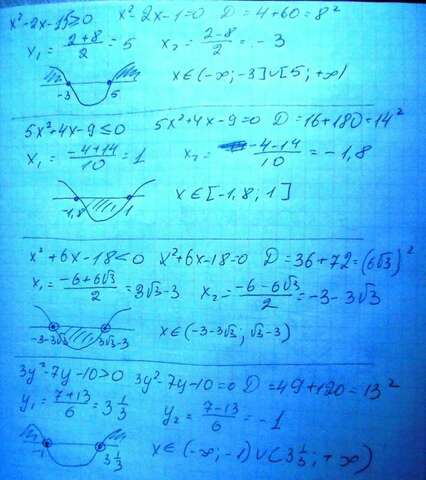 x²-2x-15>0 x²-2x-1=0 D=4+60=8²
x₁=(2+8)/2=5 x₂=(2-8)/2=-3
-3 5 x∈(-∞;-3]∪[5;+∞)
5x²+4x-9≤0 5x²+4x-9=0 D=16+180=14²
x₁=(-4+14)/10=1 x₂=(-4-14)/10=-1,8
-1,8 1 x∈[-1,8;1]
x²+6x-18<0 x²+6x-18=0 D=36+72=(6√3)²
x₁=(-6+6√3)/2=3√3-3 x₂=(-6-6√3)/2=-3-3√3
-3-3√3 3√3-3 x∈(-3-3√3;√3-3)
3y²-7y-10>0 3y²-7y-10=0 D=49+120=13²
y₁=(7+13)/6=3 1/3 y₂=(7-13)/6=-1
-1 3 1/3 x∈(-∞;-1)∪(3 1/3;+∞)